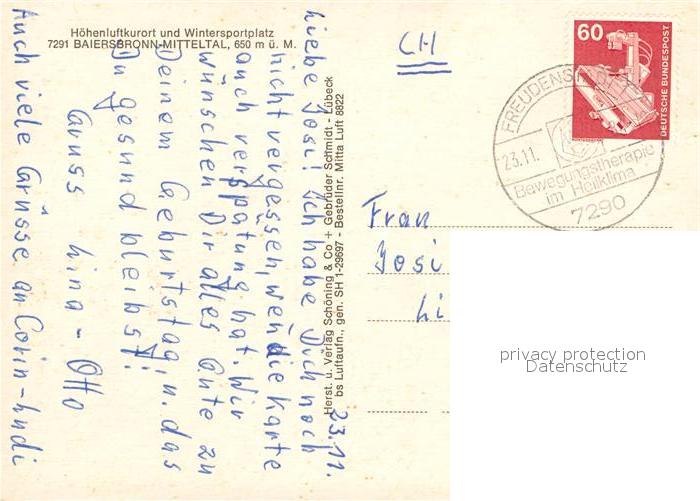 Höhenluftkurort und Wintersportplatz
7291 BAIERSBRONN-MITTELTAL, 650 m ü. M.
23.11.
Liebe Josi! Ich habe Dich noch
nicht vergessen, wen die Karte
auch verspätung hat. Wir
wünschen Dir alles Gute zu
Deinem Geburtstag, u. das
Du gesund bleibst!
Gruss Lina - Otto
Auch viele Grüsse an Corin-Rudi
Herst. u. Verlag Schöning & Co + Gebrüder Schmidt - Lübeck
bs Luftaufn., gen. SH 1-29697 - Bestellnr. Mitta Luft 8822
CH
60
DEUTSCHE BUNDESPOST
23.11.
Bewegungstherapie
im Heilklima
7290
Frau
Josi
Li
privacy protection
Datenschutz